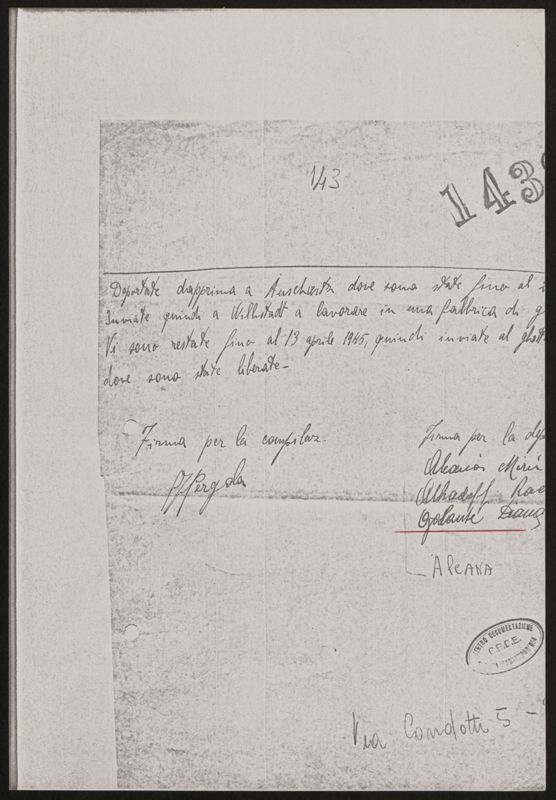 143
143
Deportate dapprima a Auschwitz dove sono state fino al
Inviate quindi a Willistadt a lavorare in una fabbrica di g
Vi sono restate fino al 13 aprile 1945, quindi inviate al ghett
dove sono state liberate -
Firma per la compilaz.
Firma per la dep
Alhadeff Rac
Galante Diana
Alcana
CENTRO DOCUMENTAZIONE
Via Condotti 5 -